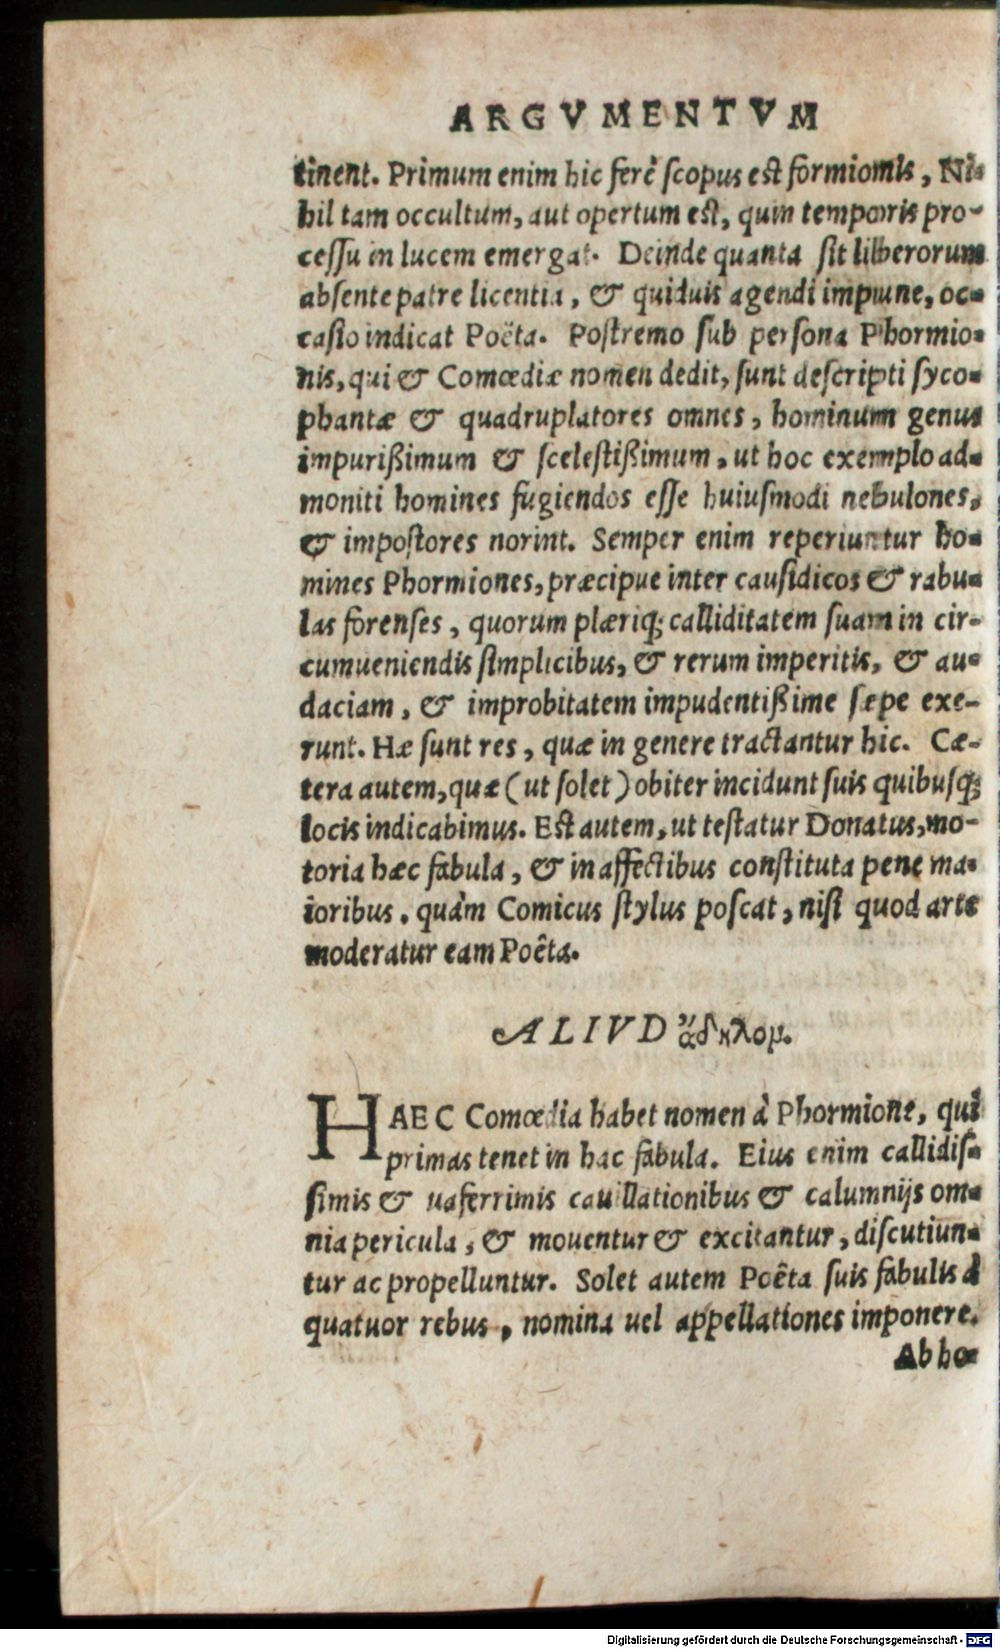 ARGVMENTVM
tinent. Primum enim hic ferè scopus est formionis, Ni-
hil tam occultum, aut opertum est, quin temporis pro-
cessu in lucem emergat. Deinde quanta sit liberorum
absente patre licentia, & quiduis agendi impune, oc-
casio indicat Poëta. Postremo sub persona Phormio-
nis, qui & Comœdiæ nomen dedit, sunt descripti syco-
phantæ & quadruplatores omnes, hominum genus
impurißimum & scelestißimum, ut hoc exemplo ad-
moniti homines fugiendos esse huiusmodi nebulones,
& impostores norint. Semper enim reperiuntur ho-
mines Phormiones, præcipue inter causidicos & rabu-
las forenses, quorum plæriq; calliditatem suam in cir-
cumueniendis simplicibus, & rerum imperitis, & au-
daciam, & improbitatem impudentißime sæpe exe-
runt. Hæ sunt res, quæ in genere tractantur hic. Cæ-
tera autem, quæ (ut solet) obiter incidunt suis quibusq;
locis indicabimus. Est autem, ut testatur Donatus, mo-
toria hæc fabula, & in affectibus constituta pene ma-
ioribus. quàm Comicus stylus poscat, nisi quod arte
moderatur eam Poêta.
ALIVD ἄδηλομ.
HAEC Comœdia habet nomen à Phormione, qui
primas tenet in hac fabula. Eius enim callidis-
simis & uaferrimis cauillationibus & calumnijs om-
nia pericula, & mouentur & excitantur, discutiun-
tur ac propelluntur. Solet autem Poêta suis fabulis à
quatuor rebus, nomina uel appellationes imponere.
Ab ho-
Digitalisierung gefördert durch die Deutsche Forschungsgemeinschaft - DFG